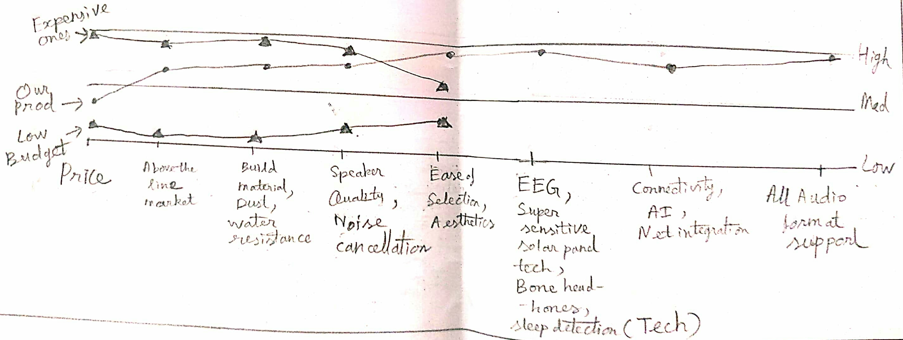 Expensive
ones
High
Our
prod
Med
Low
Budget
Low
Price
Above the
line
market
Build
material,
Dust,
water
resistance
Speaker
Quality,
Noise
cancellation
Ease of
Selection,
Aesthetics
EEG,
Super
sensitive
solar panel
tech,
Bone head-
-hones,
sleep detection (Tech)
Connectivity,
AI,
Net integration
All Audio
format
support